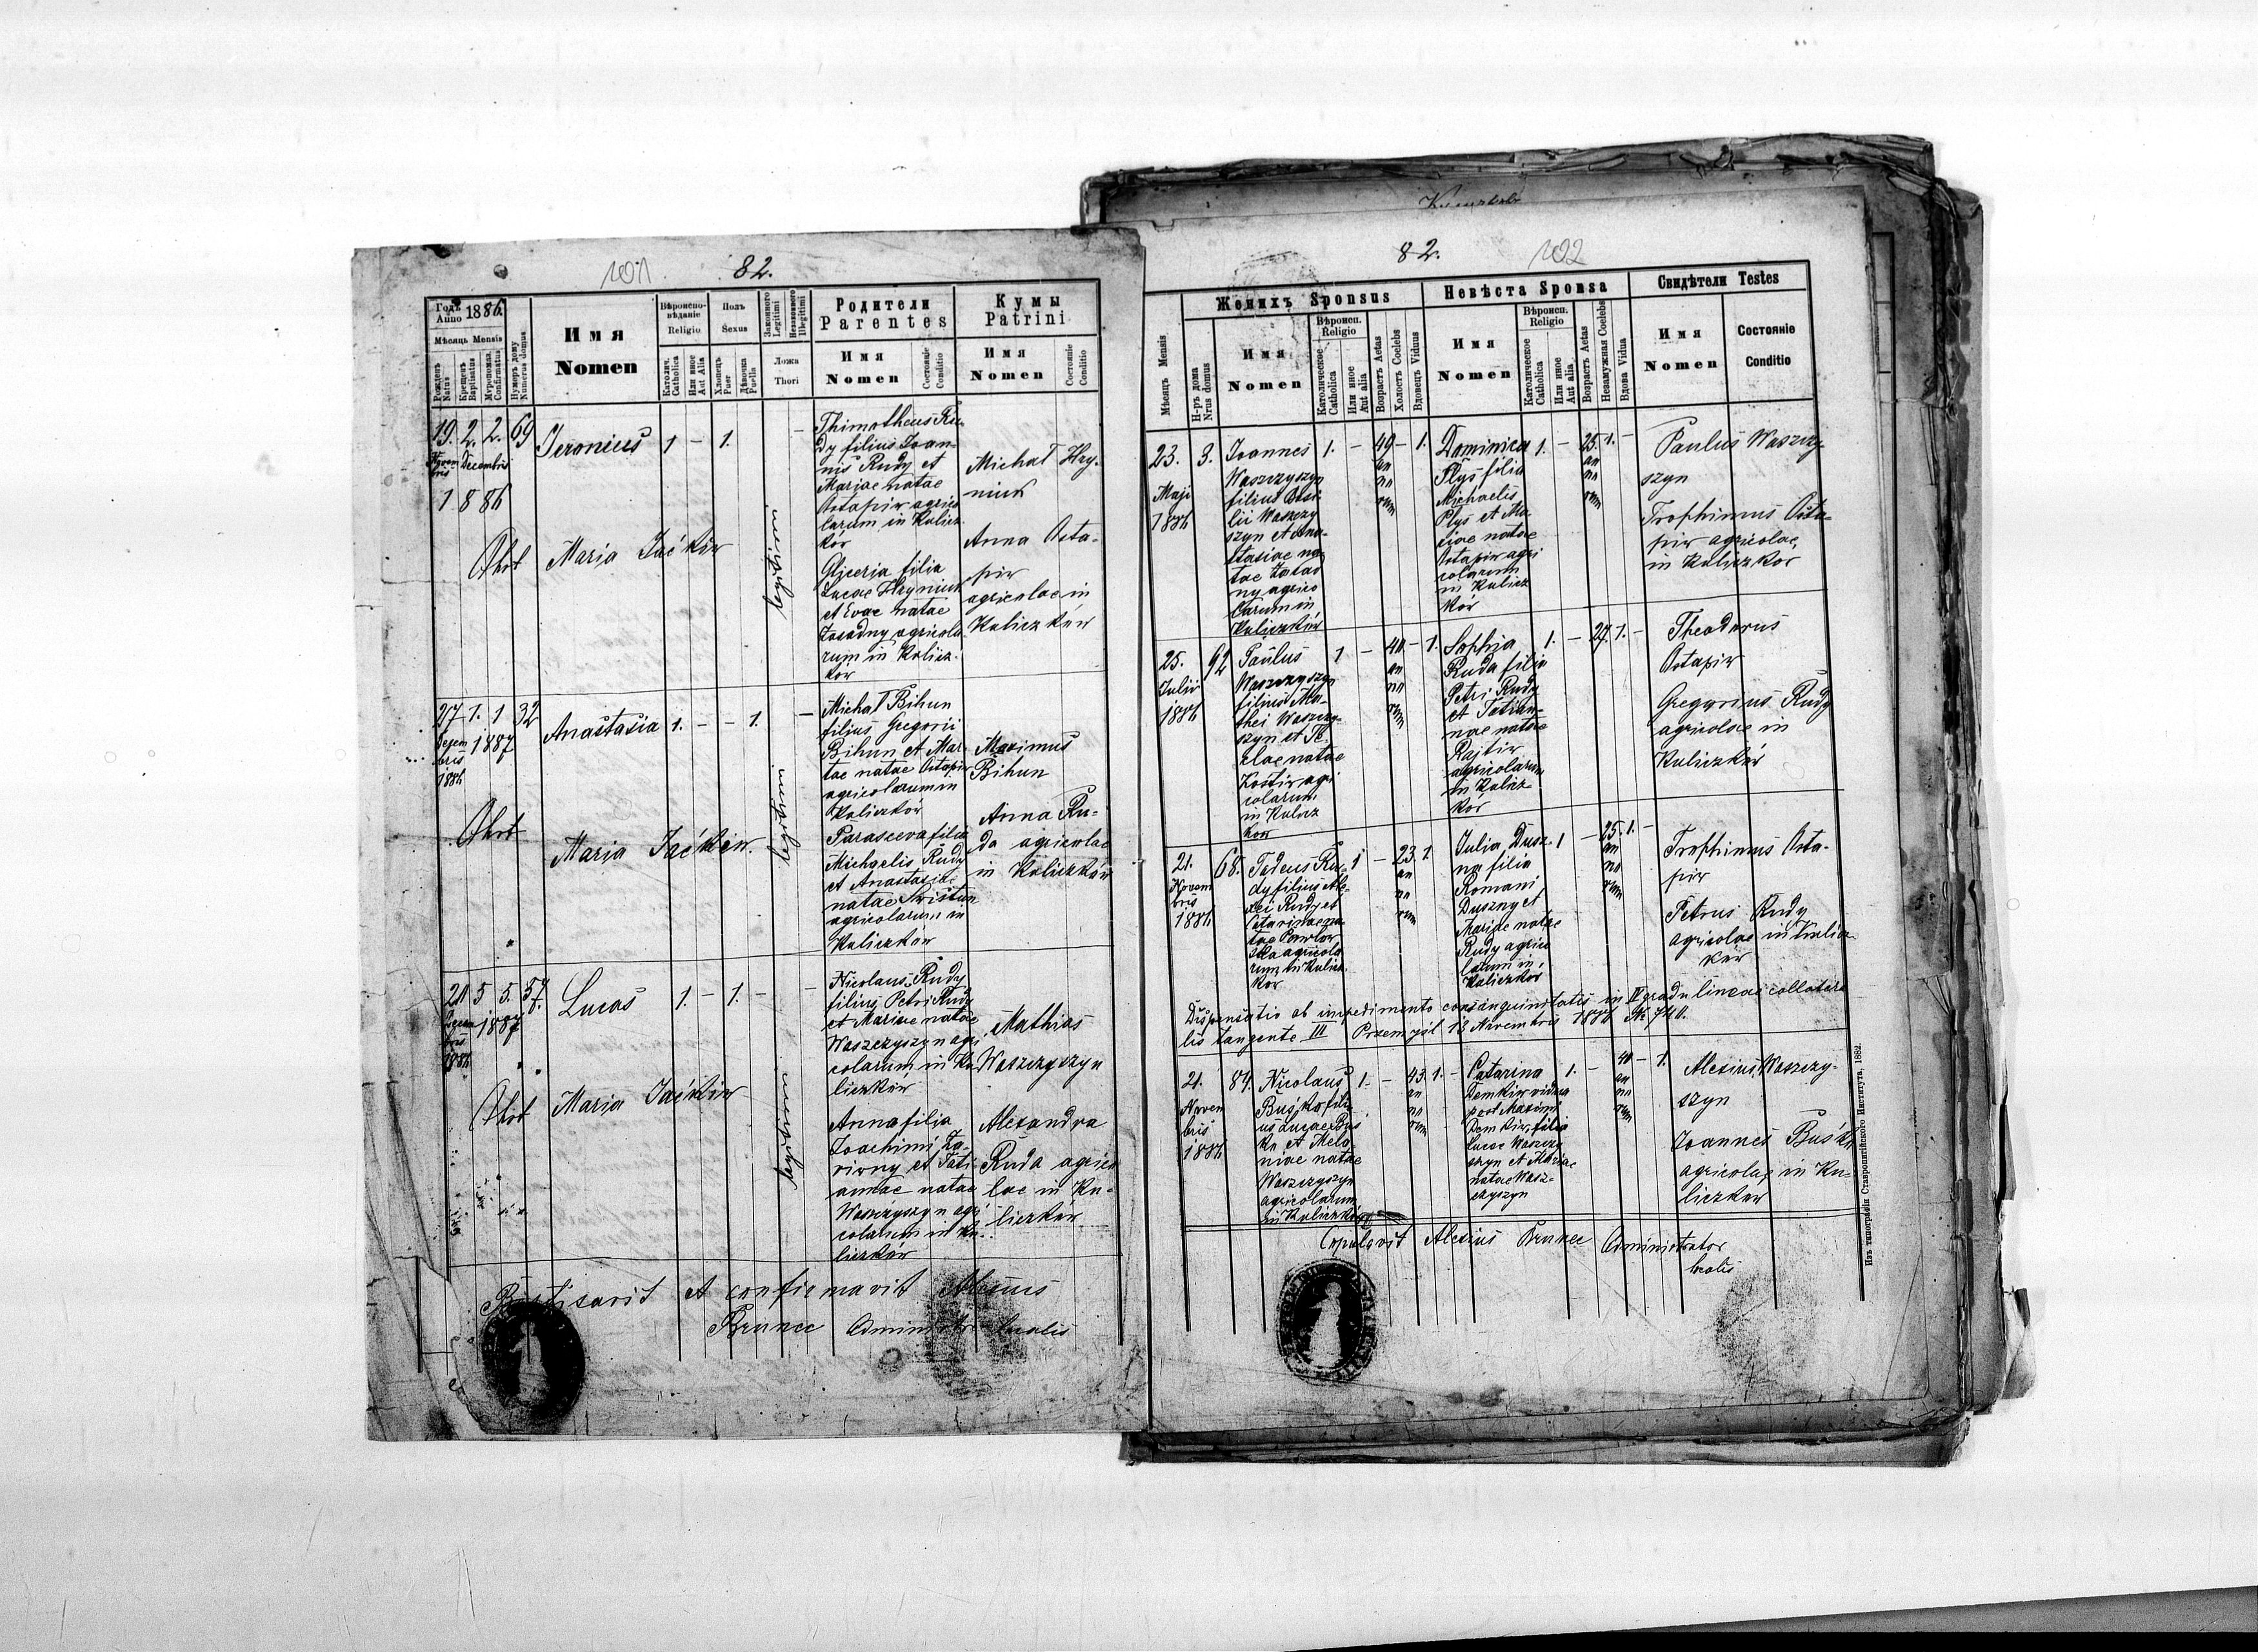 82.
Годъ Anno 1886.
Мѣсяць Mensis
Рожденъ Natus
Крещенъ Baptisatus
Мѵропомаз. Confirmatus
Нумеръ дому Numerus domus
Имя
Nomen
Вѣроиспо-
вѣданіе
Religio
Католич. Catholica
Или иное Aut Alia
Полъ
Sexus
Хлопецъ Puer
Дѣвочка Puella
Законного Legitimi
Незаконного Illegitimi
Ложа
Thori
Родители
Parentes
Имя
Nomen
Состояніе
Conditio
Кумы
Patrini
Имя
Nomen
Состояніе
Conditio
19. 2. 2. 69
Novem
bris
Decembris
1886
Jeronius 1 - 1.
Obst Maria Jaćkiw
Thimotheus Ru-
dy filius Joan-
nis Rudy et
Mariae natae
Ostapiw agrico
larum in Kulicz
ków
Glyceria filia
Lucae Hryniuk
et Evae natae
Zasadny agricola
rum in Kulicz
ków
Michał Hry-
niuk
Anna Osta-
piw
agricolae in
Kuliczków
27 1. 1 32
Decem
bris
1886
1887
Anastasia 1. - - 1. -
Obst Maria Jaćkiw.
Michał Bihun
filius Gregorii
Bihun et Mar
tae natae Ostapiw
agricolarum in
Kuliczków
Parasceva filia
Michaelis Rudy
et Anastasiae
natae
agricolarum in
Kuliczków
Maximus
Bihun
Anna Ru-
da agricolae
in Kuliczków
5 5. 57
1887
1886
Lucas 1. - 1. - -
Obst Maria Jaćkiw
Nicolaus Rudy
filius Petri Rudy
et Mariae natae
Waszczyszyn agri
colarum in Ku
liczków
Anna filia
Joachimi
et Tati
annae natae
Waszczyszyn agri
colarum in Ku
liczków
Mathias
Waszczyszyn
Alexandra
Ruda agrico
lae in Ku-
liczków
Baptisavit et confirmavit Alexius
Brunec Administrator localis
82. 102
Мѣсяць Mensis
Н-ръ дома Nrus domus
Женихъ Sponsus
Имя
Nomen
Вѣроисп.
Religio
Католическое Catholica
Или иное Aut alia
Возрастъ Aetas
Холостъ Coelebs
Вдовецъ Viduus
Невѣста Sponsa
Имя
Nomen
Вѣроисп.
Religio
Католическое Catholica
Или иное Aut alia
Возрастъ Aetas
Незамужная Coelebs
Вдова Vidua
Свидѣтели Testes
Имя
Nomen
Состояніе
Conditio
23. 3.
Maji
1886
Joannes 1. - 49 - 1.
Waszczyszyn
filius Basi
lii Waszczy
szyn et Ana-
stasiae na
tae
agrico
larum in
Kuliczków
an
no
rum
Dominica 1. - 25. 1. -
Plyś filia
Michaelis
Plyś et
natae
Ostapiw agri
colarum
in Kulicz
ków
an
no
rum
Paulus Waszczy
szyn
Trophimus Osta-
piw agricolae,
in Kuliczków
25. 92
Julii
1886
Paulus 1 - 40 - 1.
Waszczyszyn
filius Ma-
thei Waszczy-
szyn et Te
clae natae
Kostiw agri
colarum
in Kulicz
ków
an
no
rum
Sophia 1. - 27. 1. -
Ruda filia
Petri Rudy
et Tatian-
nae natae
Rajtiw
agricolarum
in Kulicz-
ków
Theodorus
Ostapiw
Gregorius Rudy
agricolae in
Kuliczków
21. 68.
Novem
bris
1886
Tadeus Ru- 1 - 23. 1.
dy filius Ale-
xei Rudy et
Catarinae na-
tae Pawłow
ska agricola
rum in Kulicz
ków
an
no
rum
Julia Dusz- 1 - 25. 1. -
na filia
Romani
Duszny et
Mariae natae
Rudy agrico
larum in
Kuliczków
an
no
rum
Trophimus Osta-
piw
Petrus Rudy
agricolae in Kulicz
ków
Dispensatio ab impedimento consanguinitatis in IV gradu lineae collatera
lis tangente III Przemyśl 13 Novembris 1886 № 740.
21. 87.
Novem
bris
1886
Nicolaus 1. - 43. 1. -
Buśko fili
us Lucae Buś
ko et Mela
niae natae
Waszczyszyn
agricolarum
in Kuliczków
an
no
rum
Catarina 1. - 40 - 1.
Demkiw vidua
post Maximi
Demkiw, filia
Lucae Waszczy
szyn et Mariae
natae Wasz-
czyszyn
an
no
rum
Alexius Waszczy-
szyn
Joannes Buśko
agricolae in Ku-
liczków
Copulavit Alexius Brunec Administrator
localis
Изъ типографіи Ставропигійского Института, 1882.